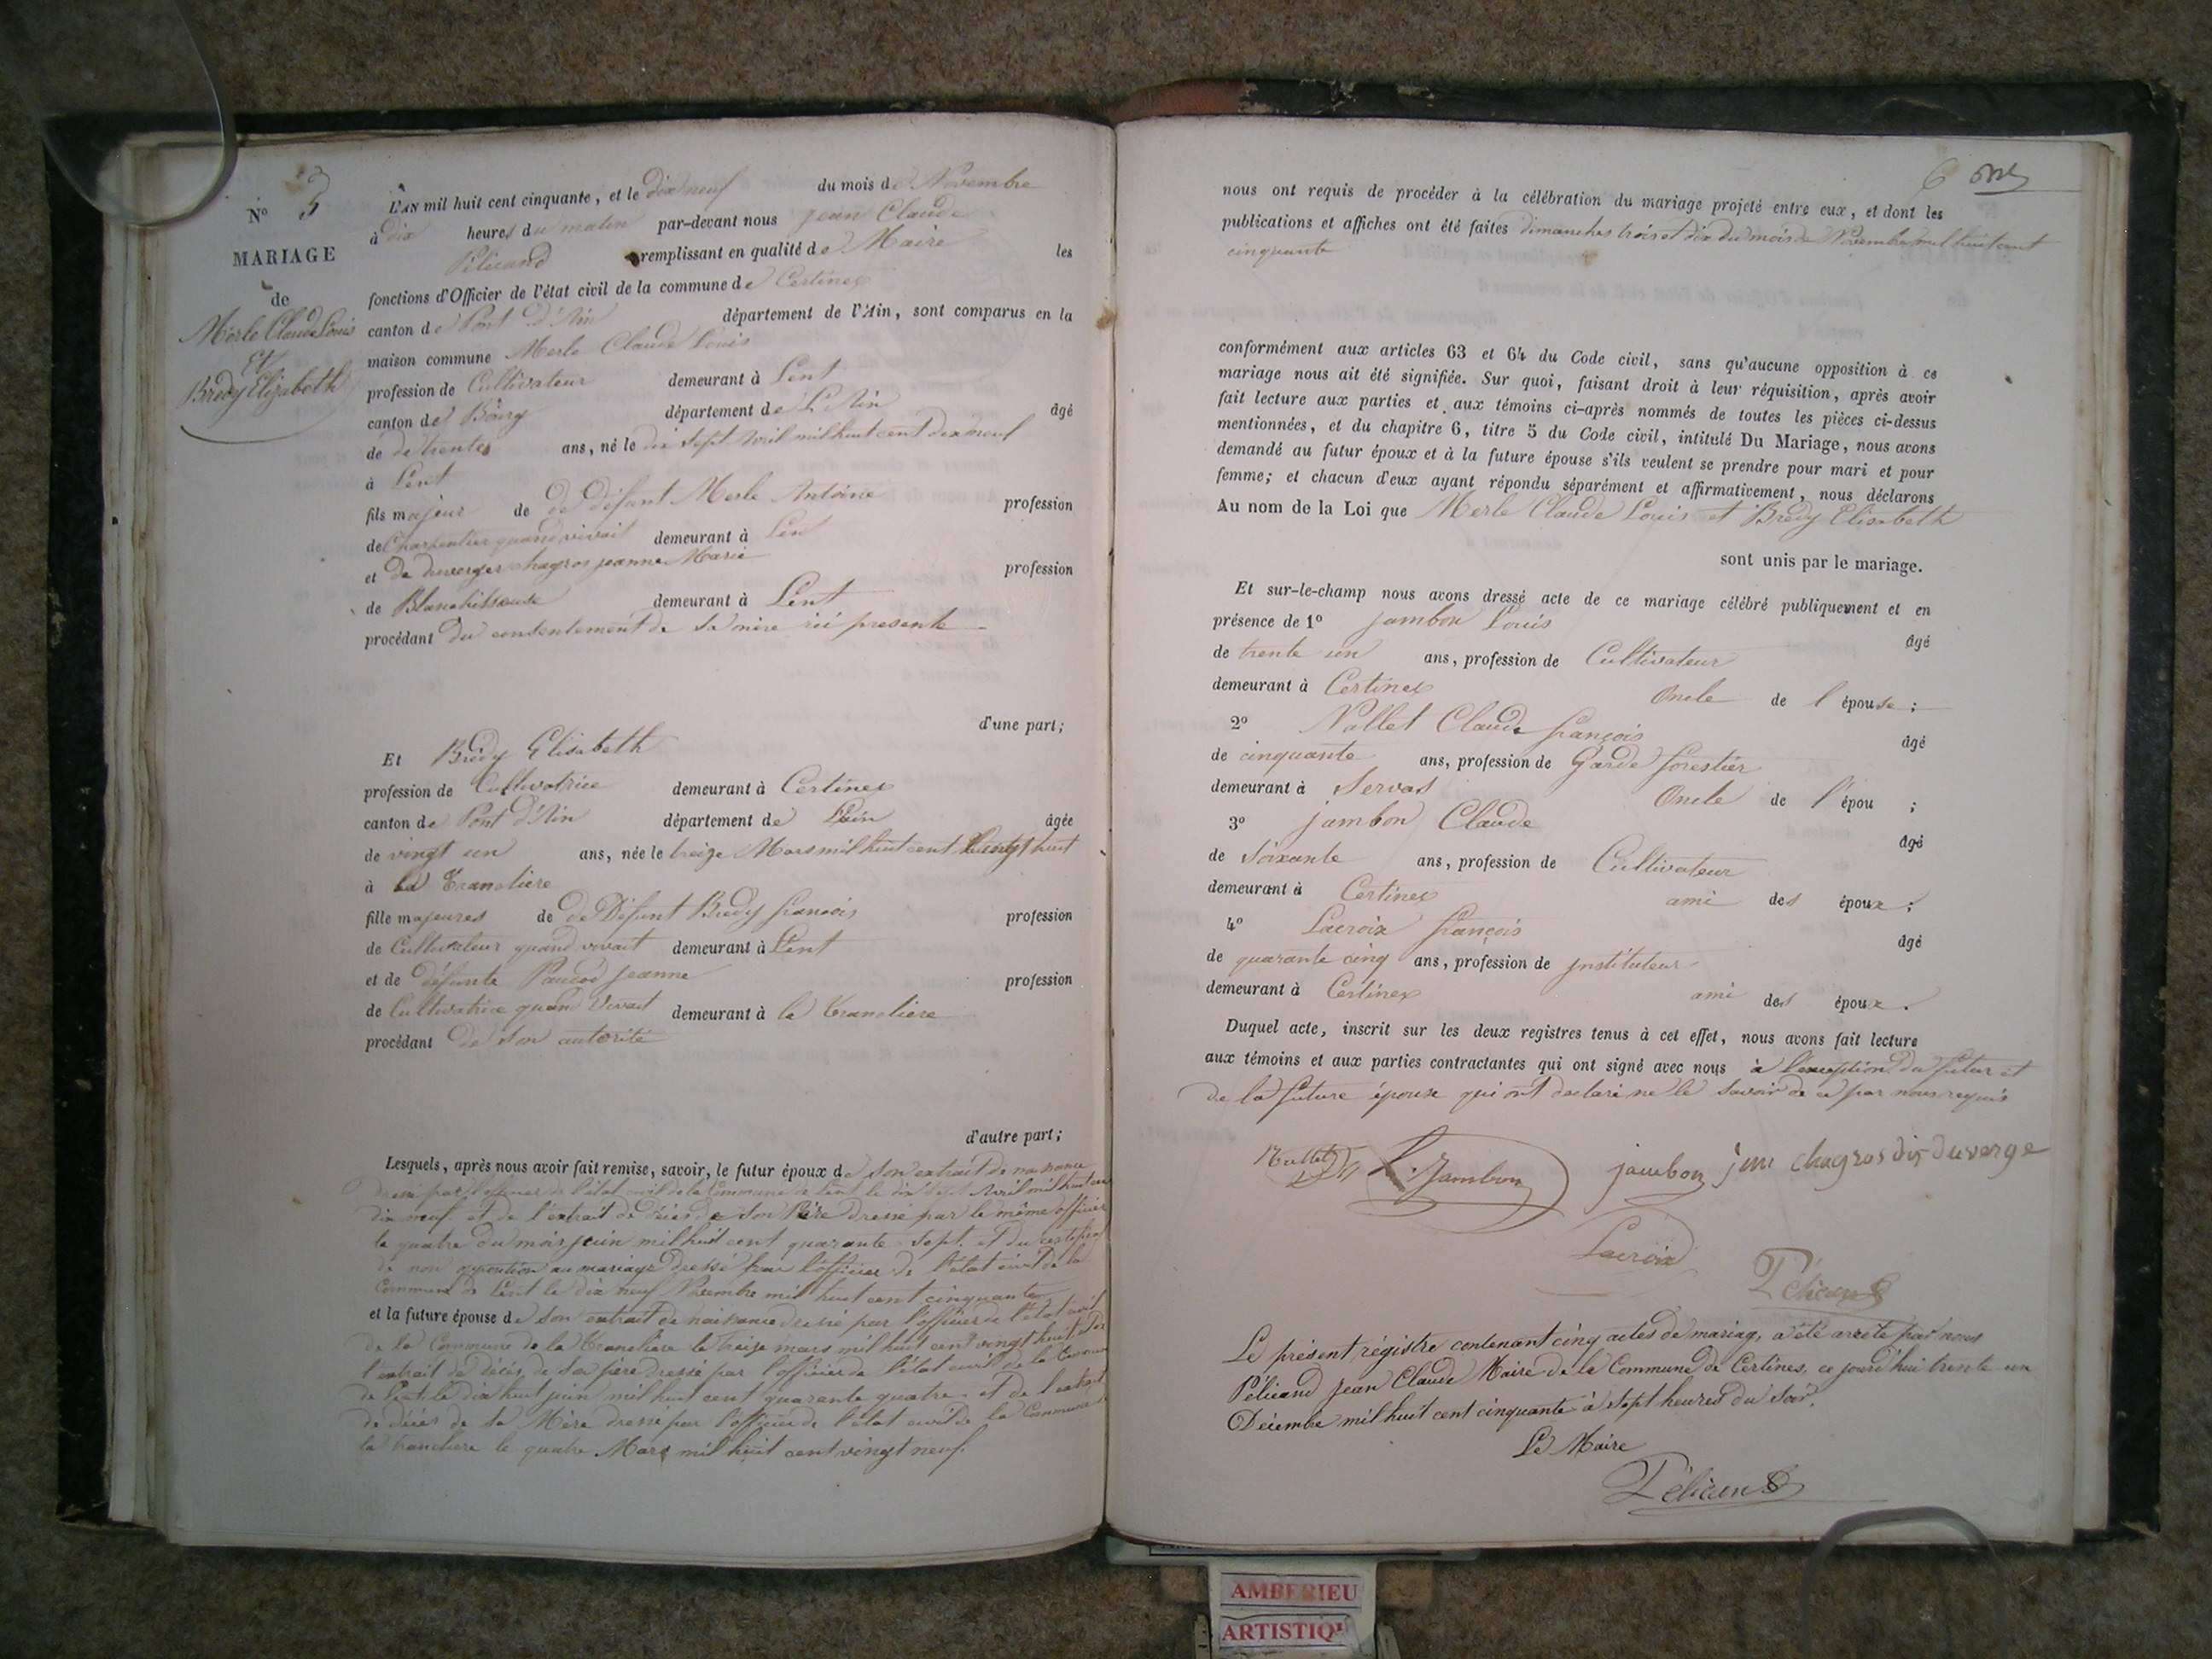 N° 5
MARIAGE
de
Merle Claude Louis
Et
Bredy Elizabeth
L'AN mil huit cent cinquante, et le dix neuf du mois de Novembre
à dix heures du matin par-devant nous jean Claude
Pélicand remplissant en qualité de Maire les
fonctions d'Officier de l'état civil de la commune de Certines
canton de Pont d'Ain département de l'Ain, sont comparus en la
maison commune Merle Claude Louis
profession de Cultivateur demeurant à Lent
canton de Bourg département de L'Ain âgé
de de trente ans, né le dix sept avril mil huit cent dix neuf
à Lent
fils majeur de de défunt Merle Antoine profession
de Charpentier quand vivait demeurant à Lent
et de duverger chagros jeanne Marie profession
de Blanchisseuse demeurant à Lent
procédant du consentement de sa mère ici presente
d'une part;
Et Brédy Elisabeth
profession de Cultivatrice demeurant à Certines
canton de Pont d'Ain département de L'ain âgée
de vingt un ans, née le treize Mars mil huit cent vingt huit
à la Tranclière
fille majeure de de Défunt Bredy françois profession
de Cultivateur quand vivait demeurant à Lent
et de défunte Paucod jeanne profession
de Cultivatrice quand vivait demeurant à la Tranclière
procédant de son autorité
d'autre part;
Lesquels, après nous avoir fait remise, savoir, le futur époux de son extrait de naissance
dressé par l'officier de l'état civil de la Commune de Lent le dix sept Avril mil huit cent
dix neuf et de l'extrait de décès de son Père dressé par le même officier
le quatre du mois juin mil huit cent quarante sept. et du certificat
de non opposition au mariage dressé par l'officier de l'état civil de la
Commune de Lent le dix neuf Novembre mil huit cent cinquante
et la future épouse de son extrait de naissance dressé par l'officier de l'état civil
de la Commune de la Tranclière le treize mars mil huit cent vingt huit et de
l'extrait de décès de son père dressé par l'officier de l'état civil de la Commune
de Lent le dix huit juin mil huit cent quarante quatre et de l'extrait
de décès de sa Mère dressé par l'officier de l'état civil de la Commune de
la Tranclière le quatre Mars mil huit cent vingt neuf.
6
nous ont requis de procéder à la célébration du mariage projeté entre eux, et dont les
publications et affiches ont été faites dimanches trois et dix du mois de Novembre mil huit cent
cinquante
conformément aux articles 63 et 64 du Code civil, sans qu'aucune opposition à ce
mariage nous ait été signifiée. Sur quoi, faisant droit à leur réquisition, après avoir
fait lecture aux parties et aux témoins ci-après nommés de toutes les pièces ci-dessus
mentionnées, et du chapitre 6, titre 5 du Code civil, intitulé Du Mariage, nous avons
demandé au futur époux et à la future épouse s'ils veulent se prendre pour mari et pour
femme; et chacun d'eux ayant répondu séparément et affirmativement, nous déclarons
Au nom de la Loi que Merle Claude Louis et Bredy Elisabeth
sont unis par le mariage.
Et sur-le-champ nous avons dressé acte de ce mariage célébré publiquement et en
présence de 1° jambon Louis âgé
de trente un ans, profession de Cultivateur
demeurant à Certines Oncle de l'épouse;
2° Nallet Claude françois âgé
de cinquante ans, profession de Garde forestier
demeurant à Servas Oncle de l'épou ;
3° jambon Claude âgé
de soixante ans, profession de Cultivateur
demeurant à Certines ami des époux;
4° Lacroix françois âgé
de quarante cinq ans, profession de jnstituteur
demeurant à Certines ami des époux.
Duquel acte, inscrit sur les deux registres tenus à cet effet, nous avons fait lecture
aux témoins et aux parties contractantes qui ont signé avec nous à l'exception du futur et
de la future épouse qui ont declaré ne le savoir de ce par nous requis
Nallet L. Jambon jambon chagros dit duverge
Lacroix
Pélicand
Le présent régistre contenant cinq actes de mariag, a été arrêté par nous
Pélicand jean Claude Maire de la Commune de Certines, ce jourd'hui trente un
Décembre mil huit cent cinquante à sept heures du soir.
Le Maire
Pélicand
AMBERIEU
ARTISTIQ